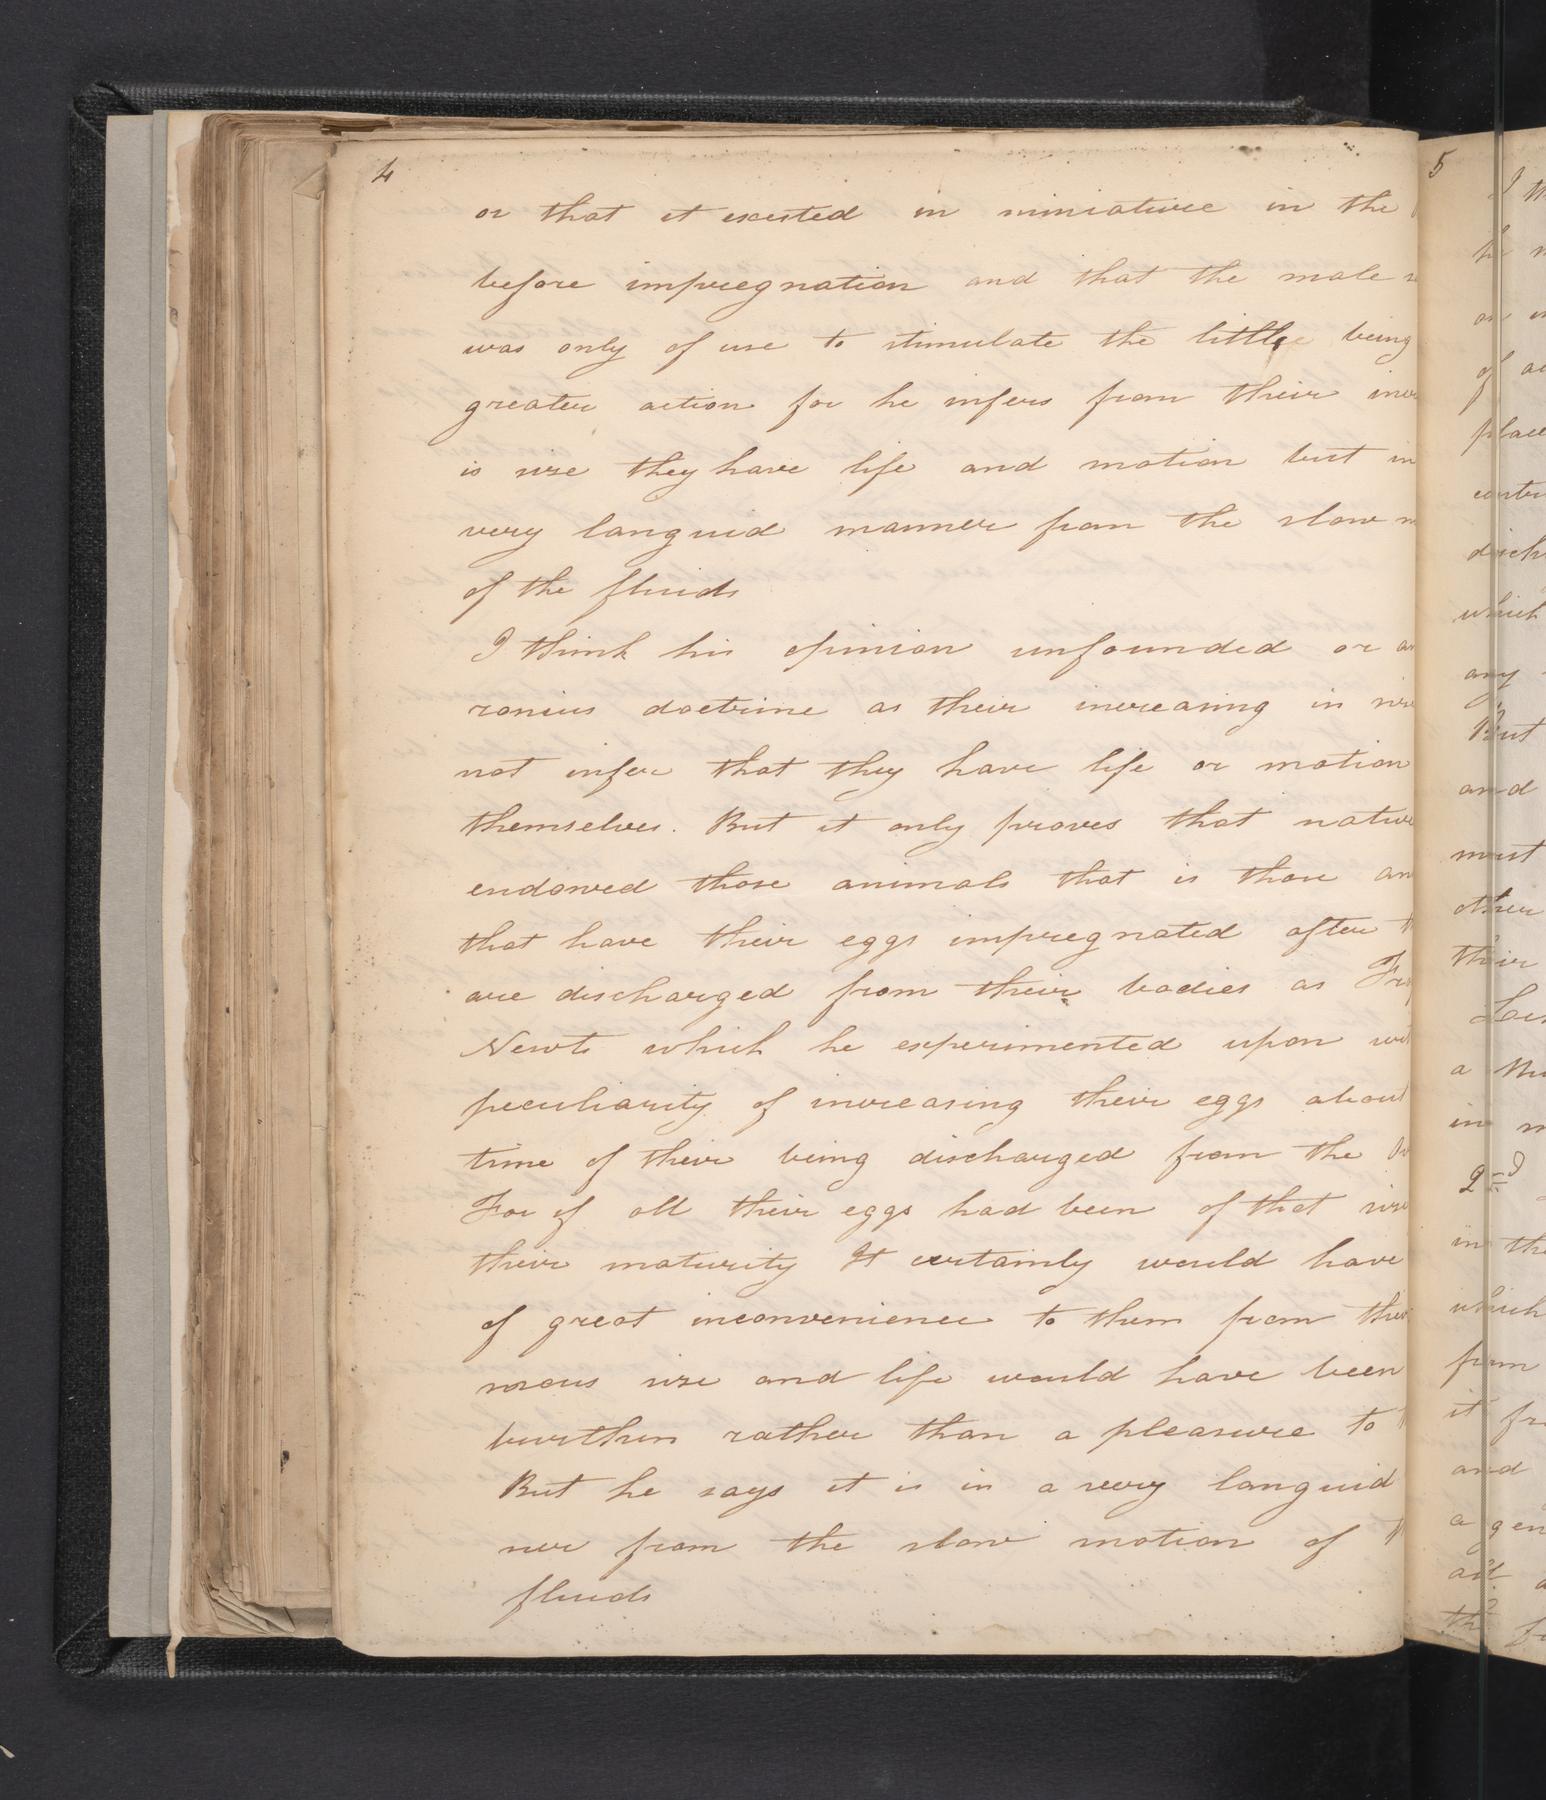 4
or that it existed in miniature in the
before impregnation and that the male
was only of use to stimulate the little being
greater action for he infers from their
is size they have life and motion but in
very languid manner from the slow
of the fluids
I think his opinion unfounded or
ronius doctrine as their increasing in
not infer that they have life or motion
themselves. But it only proves that nature
endowed those animals that is those an
that have their eggs impregnated after
are discharged from their bodies as
Newts which he experimented upon
peculiarity of increasing their eggs about
time of their being discharged from the
For if all their eggs had been of that size
their maturity It certainly would have
of great inconvenience to them from their
mous size and life would have been
burthen rather than a pleasure to
But he says it is in a very languid
ner from the slow motion of
fluids
5
I
of
place
which
any
But
and
must
other
their
a
in
2nd
in the
which
from
it
and
a gen